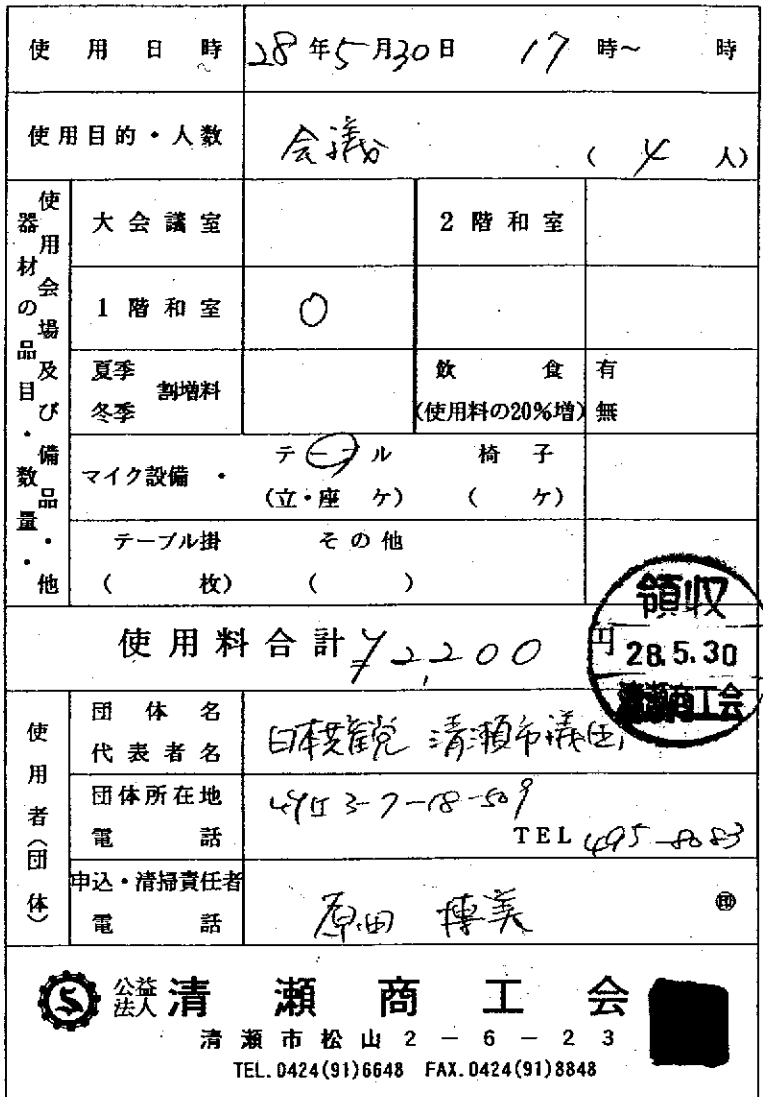 使用日時 28年5月30日 17時~ 時
使用目的・人数 会議 (4人)
使用会場及び備品・他
器材の品目・数量・
大会議室 2階和室
1階和室 ○
夏季 冬季 割増料 飲食 有
(使用料の20%増) 無
マイク設備 ・ テーブル 椅子
(立・座 ケ) ( ケ)
テーブル掛 その他
( 枚) ( )
使用料合計 ¥2,200 円
領収
28.5.30
清瀬商工会
使用者(団体)
団体名
代表者名 日本共産党 清瀬市議団
団体所在地 3-7-18-509
電話 TEL 495-8083
申込・清掃責任者
電話 原田 博美 ㊞
公益法人 清瀬商工会
清瀬市松山2-6-23
TEL.0424(91)6648 FAX.0424(91)8848